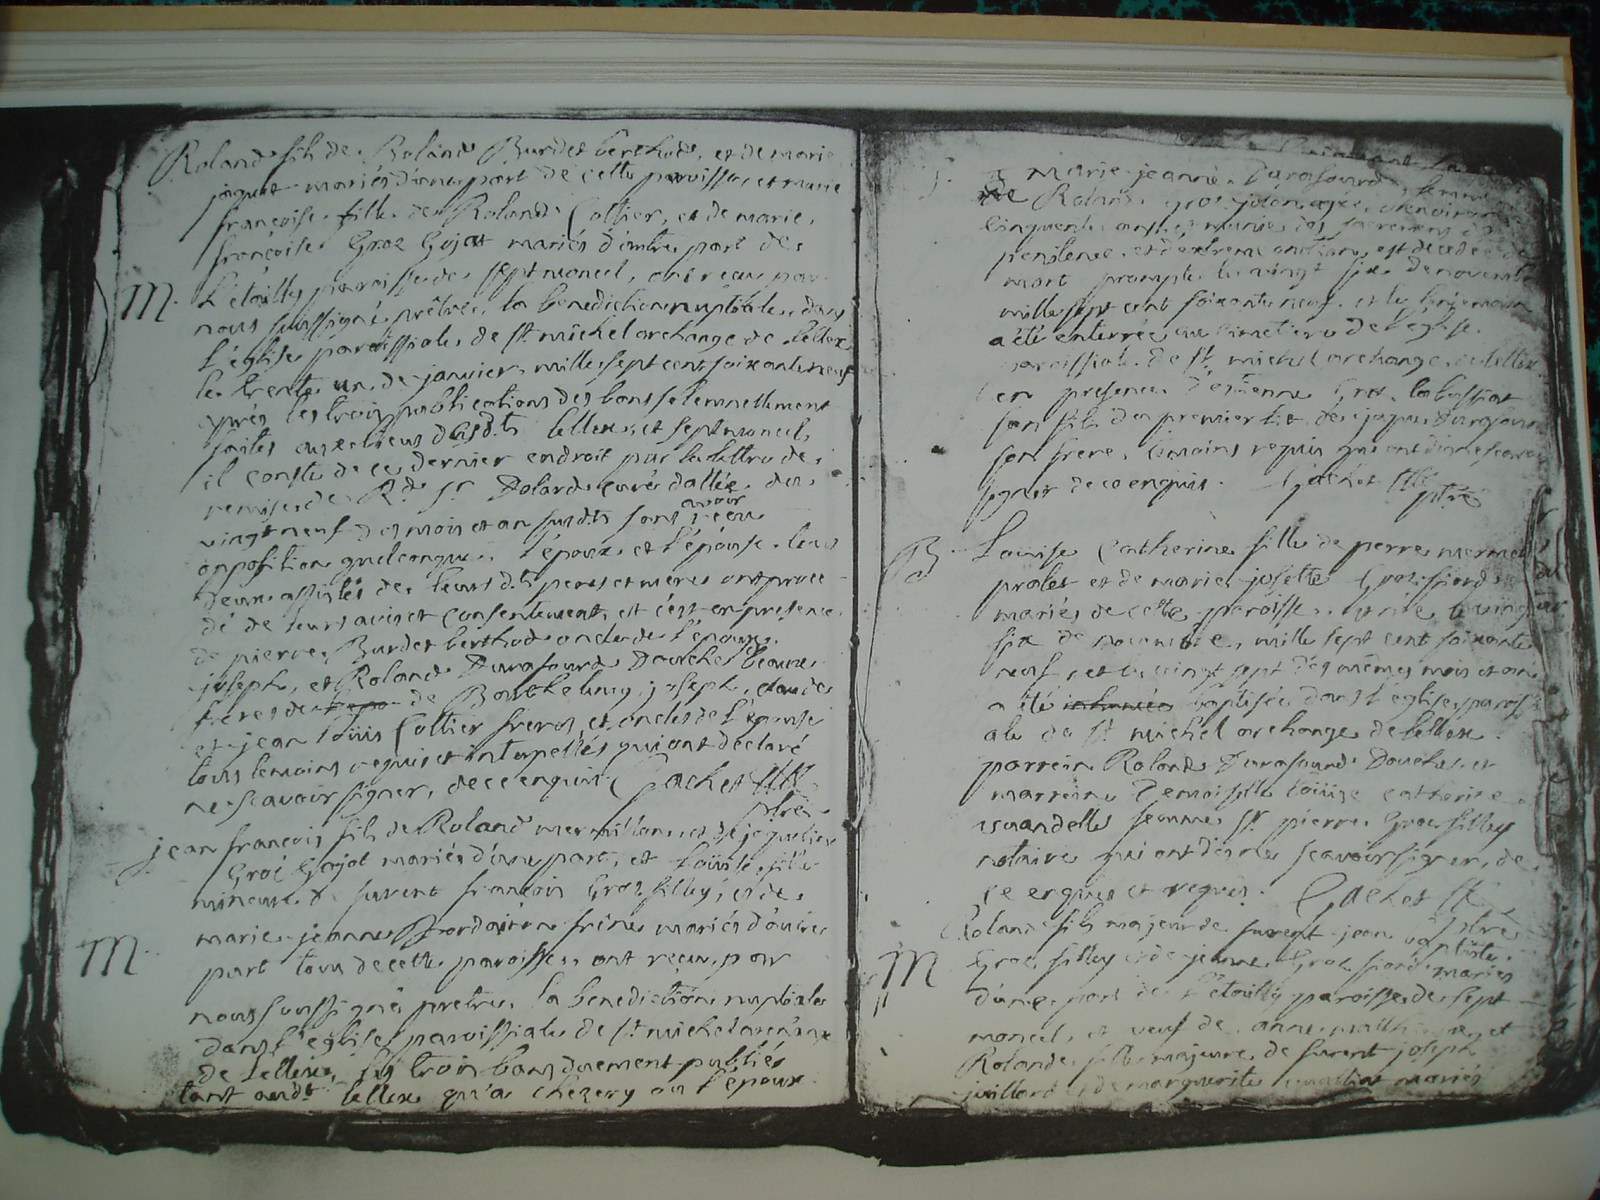 Roland fils de Roland Burdet berthod, et de marie
jaquet mariés d'une part de cette paroisse, et marie
françoise fille de Roland Collier, et de marie
françoise Groz Gojat mariés d'autre part de
M. L'étailly paroisse de septmoncel, ont reçu par
nous soussigné prêtre, la bénédiction nuptiale dans
l'église paroissiale de st michel archange de Lellex
le trente un de janvier mille sept cent soixante neuf
après les trois publications des bans solemnellement
faites aux lieux desdts lellex, et septmoncel,
il conste de ce dernier endroit par la lettre de
remise de Rd sr Dolard curé du
vingt neuf des mois et an susdts sans avoir reçu
opposition quelconque. l'époux et l'épouse tous
deux assistés de leurs dts peres et meres ont procé
dé de leurs avis et consentement, et c'est en presence
de pierre Burdet berthod oncle de l'époux,
joseph, et Roland Durafourd Dauchet beaux
freres de de joseph, claude
et jean loüis Collier freres, et oncles de l'épouse
tous temoins requis et interpellés qui ont déclaré
ne scavoir signer, de ce enquis. Gachet
ptre
jean françois fils de Roland mermillon, et de jaqueline
Groz Gojat mariés d'une part, et Loüise fille
mineure de furent françois Groz filley, et de
marie jeanne mariés d'autre
M. part tous de cette paroisse, ont reçu par
nous soussigné prêtre, la benediction nuptiale
dans l'église paroissiale de st michel archange
de Lellex, les trois bans duement publiés
tant audt lellex qu'à chézery où l'époux
Marie jeanne Durafourd, femme
de Roland Groz agée d'environ
cinquante ans, et munie des sacremens de
penitence, et d'extreme onction, est decedée de
mort prompte le vingt six de novembre
mille sept cent soixante neuf, et le
a été enterrée au cimetiere de l'église
paroissiale de st michel archange de lellex
en presence d'étienne Groz
son fils du premier lit de jaque Durafourd
son frere, temoins requis qui ont dit ne scavoir
signer de ce enquis. Gachet
ptre
B Louise Catherine fille de pierre mermet
prolet et de marie josette Groz fiord
mariés de cette paroisse, née le vingt
six de novembre, mille sept cent soixante
neuf, et le vingt sept des mêmes mois et an
a été baptisée dans l'église paroissi
ale de st michel archange de lellex.
parrein Roland Durafourd Dauchet et
marreine Demoiselle loüise catherine
femme Sr pierre Groz filley
notaire qui ont dit ne scavoir signer, de
ce enquis et requis. Gachet
ptre
Roland fils majeur de furent jean baptiste
M Groz filley et de jeanne Groz fiord mariés
d'une part de l'étailly paroisse de sept
moncel, et veuf de anne et
Rolande fille majeure de furent joseph
juillard et de marguerite mariés